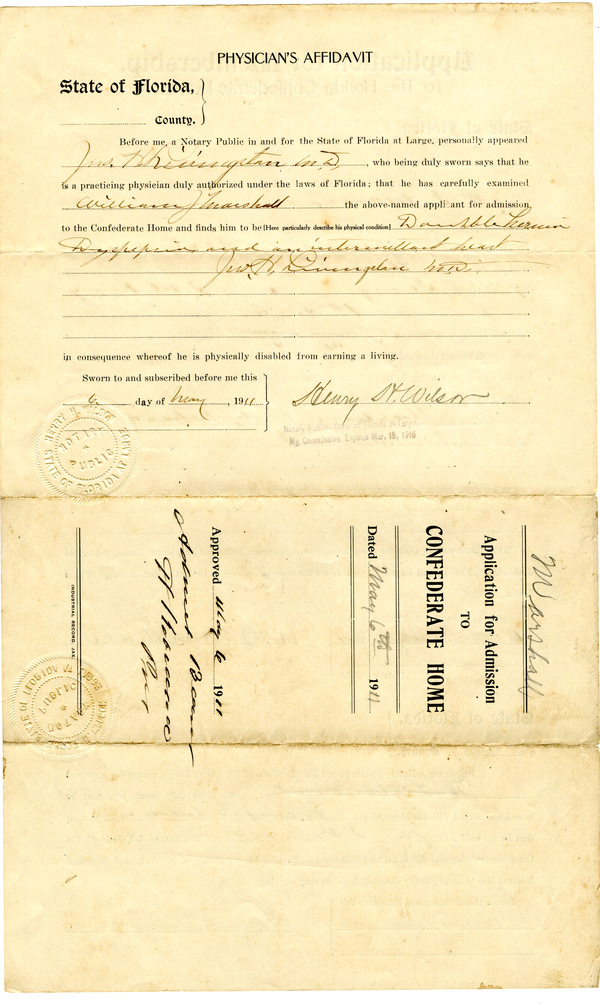 PHYSICIAN'S AFFIDAVIT
State of Florida,
County.
Before me, a Notary Public in and for the State of Florida at Large, personally appeared
Jno. H. Livingston M.D., who being duly sworn says that he
is a practicing physician duly authorized under the laws of Florida; that he has carefully examined
William J Marshall the above-named applicant for admission
to the Confederate Home and finds him to be [Here particularly describe his physical condition] Double hernia
Dyspepsia, and an intermittant heart
Jno. H. Livingston M.D.
in consequence whereof he is physically disabled from earning a living.
Sworn to and subscribed before me this
6 day of May, 1911
Henry W. Wilson
Notary Public State of Florida at Large
My Commission Expires Mar. 15, 1915
HENRY W. WILSON
NOTARY PUBLIC
STATE OF FLORIDA AT LARGE
Marshall
Application for Admission
TO
CONFEDERATE HOME
Dated May 6th 1911
Approved May 6 1911
INDUSTRIAL RECORD, JAX.